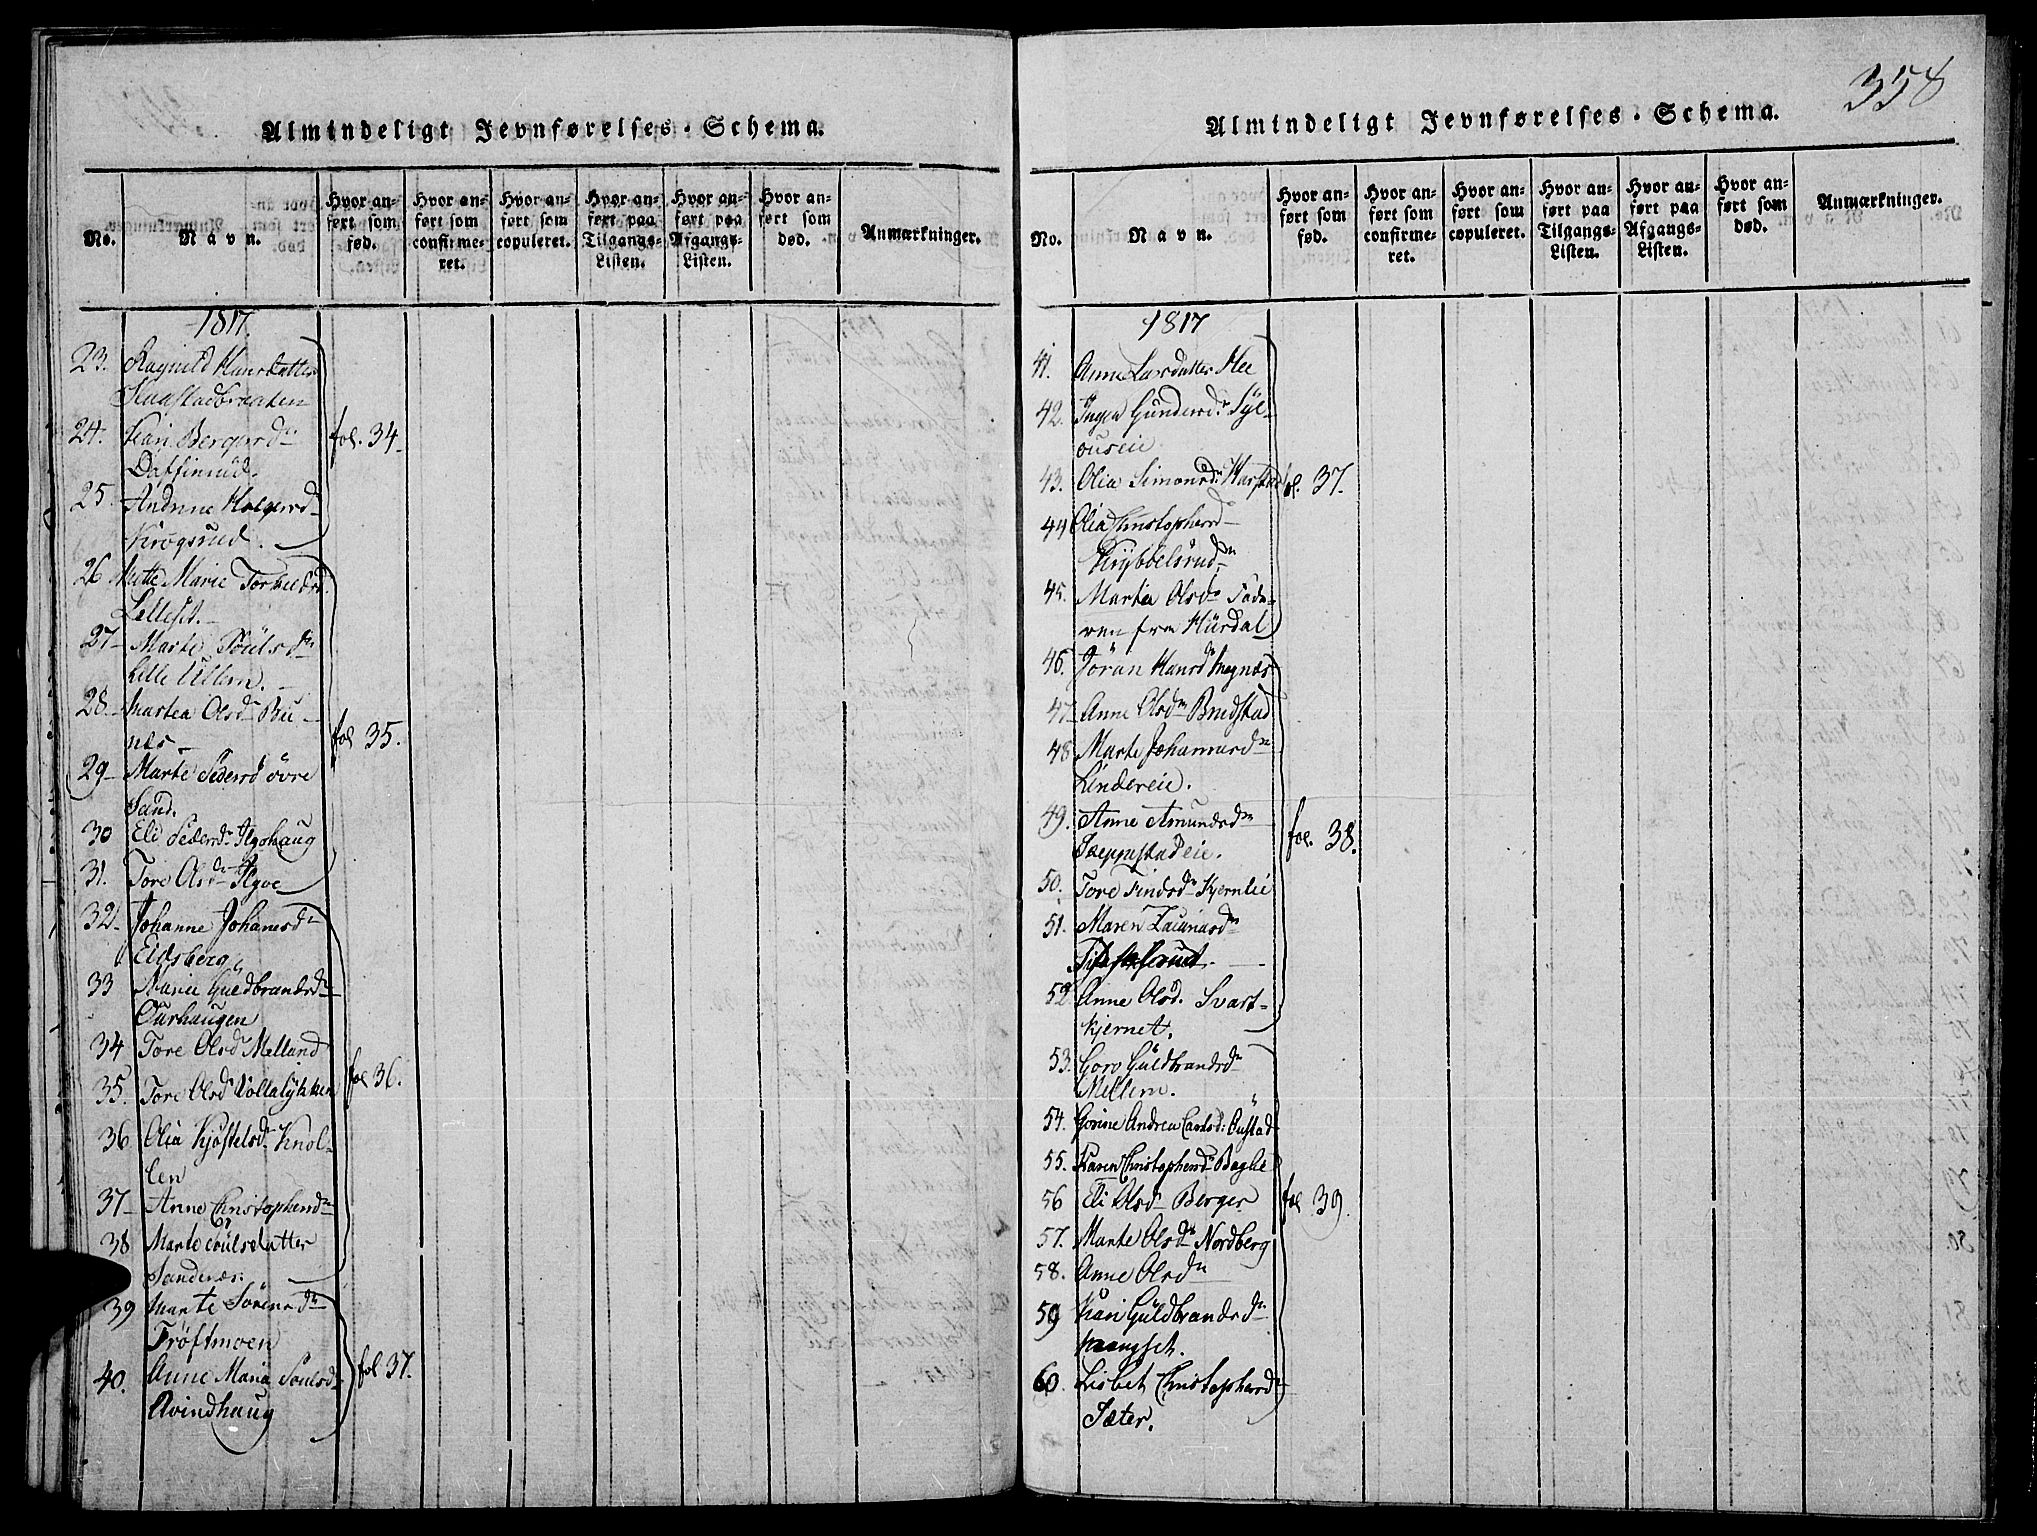 Almindeligt Jevnførelses-Schema.
No.
Navn.
Hvor an-
ført som
fød.
Hvor an-
ført som
confirme-
ret.
Hvor an-
ført som
copuleret.
Hvor an-
ført paa
Tilgangs-
Listen.
Hvor an-
ført paa
Afgangs-
Listen.
Hvor an-
ført som
død.
Anmærkninger.
1817.
23. Ragnild Hansdatter
Haastadbraaten
24. Kari Bergerdr
Daffinrud.
25. Andrine Holgerd
Krogsrud.
fol. 34.
26 Mette Marie Torkelsd
Lilleset.
27 Marte Poulsdr
Lille Ullern.
28 Martea Olsdr Bu-
næs
29 Marte Pedersd øvre
Sand.
30 Eli Pedersdr Algohaug
31. Tore Olsdr Algoe
fol 35.
32. Johanne Johansdr
Eidsberg
33 Marie Guldbrandsdr
Ourhaugen
34 Tore Olsdr Melland
35. Tore Olsd Vollaløkken
36 Olia Kjøstelsdr Knol-
len
37 Anne Christophersdr
38 Marte Poulsdatter
Sandnæs.
fol 36.
39 Marte Sørensdr
Trøftmoen
40. Anne Maria Poulsdr
Qvindhaug
fol 37.
358
Almindeligt Jevnførelses-Schema.
No.
Navn.
Hvor an-
ført som
fød.
Hvor an-
ført som
confirme-
ret.
Hvor an-
ført som
copuleret.
Hvor an-
ført paa
Tilgangs-
Listen.
Hvor an-
ført paa
Afgangs-
Listen.
Hvor an-
ført som
død.
Anmærkninger.
1817
41. Anne Larsdatter Hee
42. Inger Gundersdr Syl-
ouseie
43. Olia Simonsdr Harstad
44 Olia Christophersd
Knybbelsrud
45. Martea Olsdr
ven fra Hurdal
fol. 37.
46. Jöran Hansdr Magnæs
47 Anne Olsdr Bredstad
48 Marte Johannesdr
Lindereie.
49. Anne Amundsdr
Sæppestadeie.
50. Tore Findsdr Kjernlie
51. Maren
52 Anne Olsd. Svart-
kjernet.
fol. 38.
53. Goro Guldbrandsdr
Mellem.
54. Gorine Andrea Carlsd: Oustad
55. Karen Christophersdr Baglie
56 Eli Olsdr Berger
57. Marte Olsdr Nordberg
58. Anne Olsdr
59 Kari Guldbrandsdr
Haugset.
60. Lisbet Christophersdr
Sæter.
fol 39.